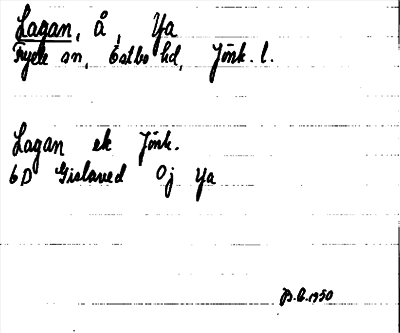 Lagan, å, Ya
Fryele sn, Östbo hd, Jönk. l.
Lagan ek Jönk.
6D Gislaved Oj Ya
B.G. 1950